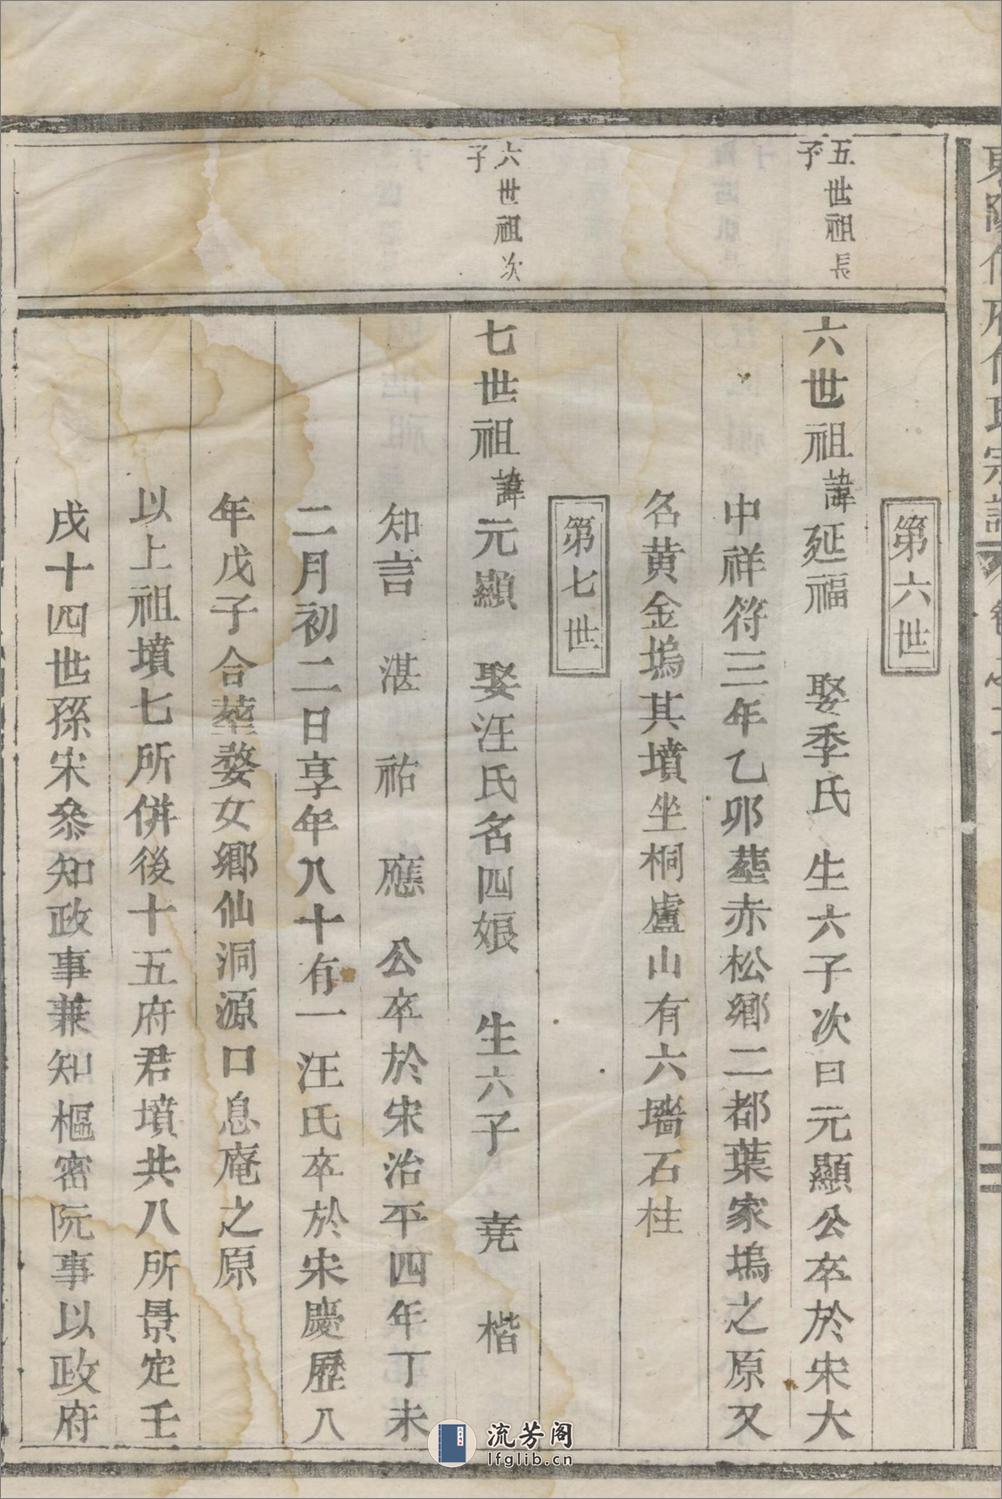 第六世
五世祖長子
六世祖諱延福 娶季氏 生六子次曰元顯公卒於宋大
中祥符三年乙卯塟赤松鄉二都葉家塢之原又
名黄金塢其墳坐桐盧山有六墻石柱
第七世
六世祖次子
七世祖諱元顯 娶汪氏名四娘 生六子 堯 楷
知言 湛 祐 應 公卒於宋治平四年丁未
二月初二日享年八十有一汪氏卒於宋慶歷八
年戊子合塟婺女鄉仙洞源口息庵之原
以上祖墳七所併後十五府君墳共八所景定壬
戌十四世孫宋叅知政事蒹知樞密阮事以政府
流芳阁
lfglib.cn